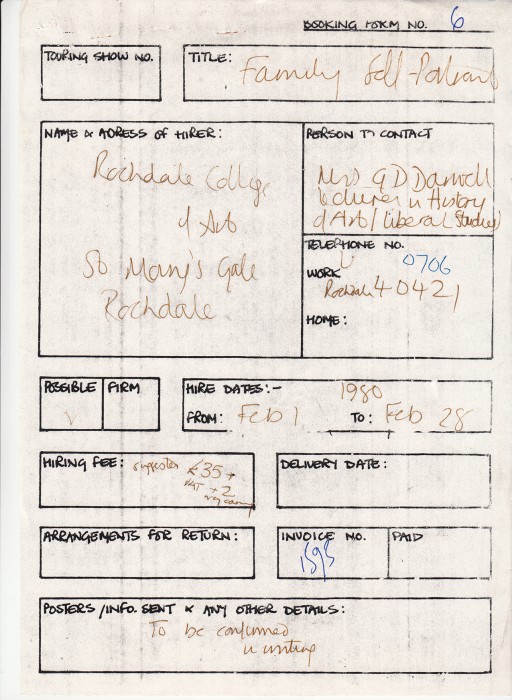 BOOKING FORM NO. 6
TOURING SHOW NO.
TITLE: Family Self-Portrait
NAME & ADRESS OF HIRER:
Rochdale College
of Art
St Mary's Gate
Rochdale
PERSON TO CONTACT
Mrs G D Darnell
lecturer in History
of Art/Liberal Studies
TELEPHONE NO.
0706
WORK
Rochdale 40421
HOME:
POSSIBLE FIRM
HIRE DATES:- 1980
FROM: Feb 1 TO: Feb 28
HIRING FEE: £35 +
VAT + 2
DELIVERY DATE:
ARRANGEMENTS FOR RETURN:
INVOICE NO. PAID
POSTERS/INFO. SENT & ANY OTHER DETAILS:
To be confirmed
in writing